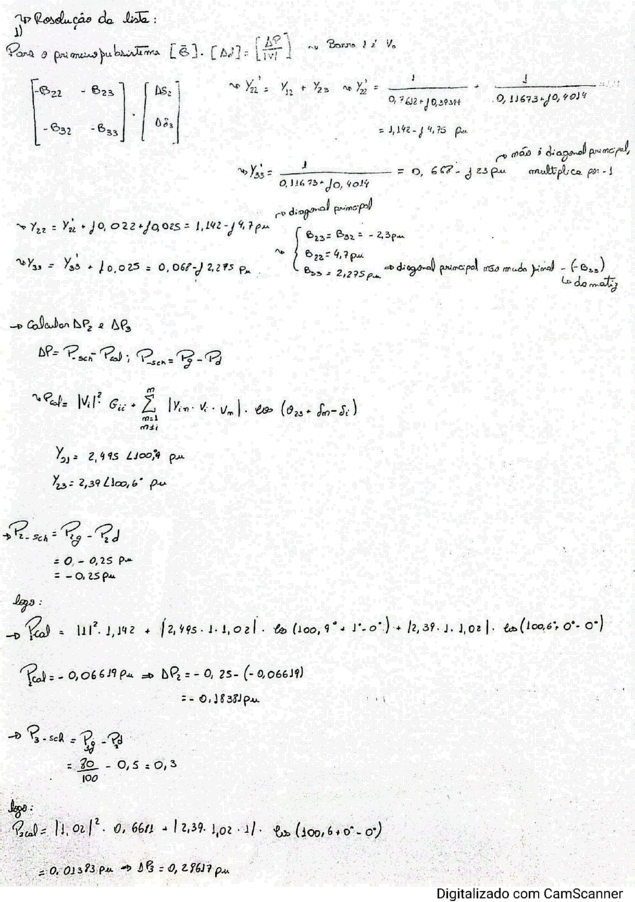 ⤳ Resolução da lista:
1)
Para o primeiro subsistema [B̄] · [Δd] = [ΔP/|V|] ⤳ Barra 1 é Vo
[-B22 -B23 ; -B32 -B33] · [Δδ2 ; Δδ3]
⤳ Y22' = Y12 + Y23 ⤳ Y22' = 1/(0,7612+j0,3914) + 1/(0,11673+j0,4014)
= 1,142 - j4,75 pu
⤳ Y33' = 1/(0,11673+j0,4014) = 0,668 - j23 pu
↱ não é diagonal principal,
multiplica por -1
⤳ Y22 = Y22' + j0,022 + j0,025 = 1,142 - j4,7 pu
↱ diagonal principal
⤳ Y33 = Y33' + j0,025 = 0,068 - j2,275 pu
⤳ { B23 = B32 = -2,3 pu
B22 = 4,7 pu
B33 = 2,275 pu ⇒ diagonal principal não muda sinal - (-B33)
↳ da matiz
→ Calcular ΔP2 e ΔP3
ΔP = P-sch - Pcal ; P-sch = Pg - Pd
⤳ Pcal = |Vi|² Gii + Σ(m, m=1, m≠i) |Yin · Vi · Vm| · cos (θ23 + δm - δi)
Y21 = 2,495 ∠100,9 pu
Y23 = 2,39 ∠100,6° pu
→ P2-sch = P2g - P2d
= 0 - 0,25 pu
= -0,25 pu
logo:
→ Pcal = |1|² · 1,142 + |2,495 · 1 · 1,02| · cos (100,9° + 1° - 0°) + |2,39 · 1 · 1,02| · cos (100,6 + 0° - 0°)
Pcal = -0,06619 pu ⇒ ΔP2 = -0,25 - (-0,06619)
= -0,18381 pu
→ P3-sch = P3g - P3d
= 80/100 - 0,5 = 0,3
logo:
P3cal = |1,02|² · 0,6681 + |2,39 · 1,02 · 1| · cos (100,6 + 0° - 0°)
= 0,01383 pu ⇒ ΔP3 = 0,28617 pu
Digitalizado com CamScanner